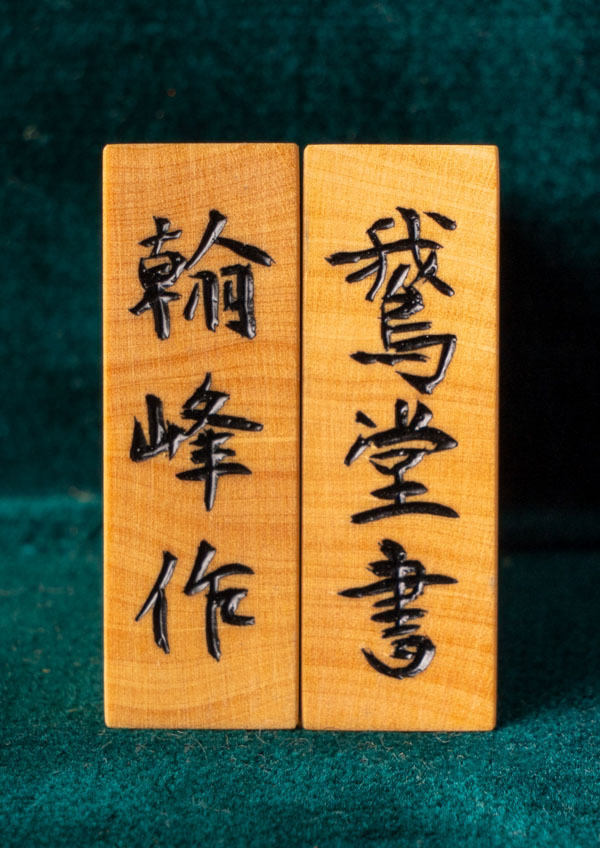 鵞堂書
翰峰作